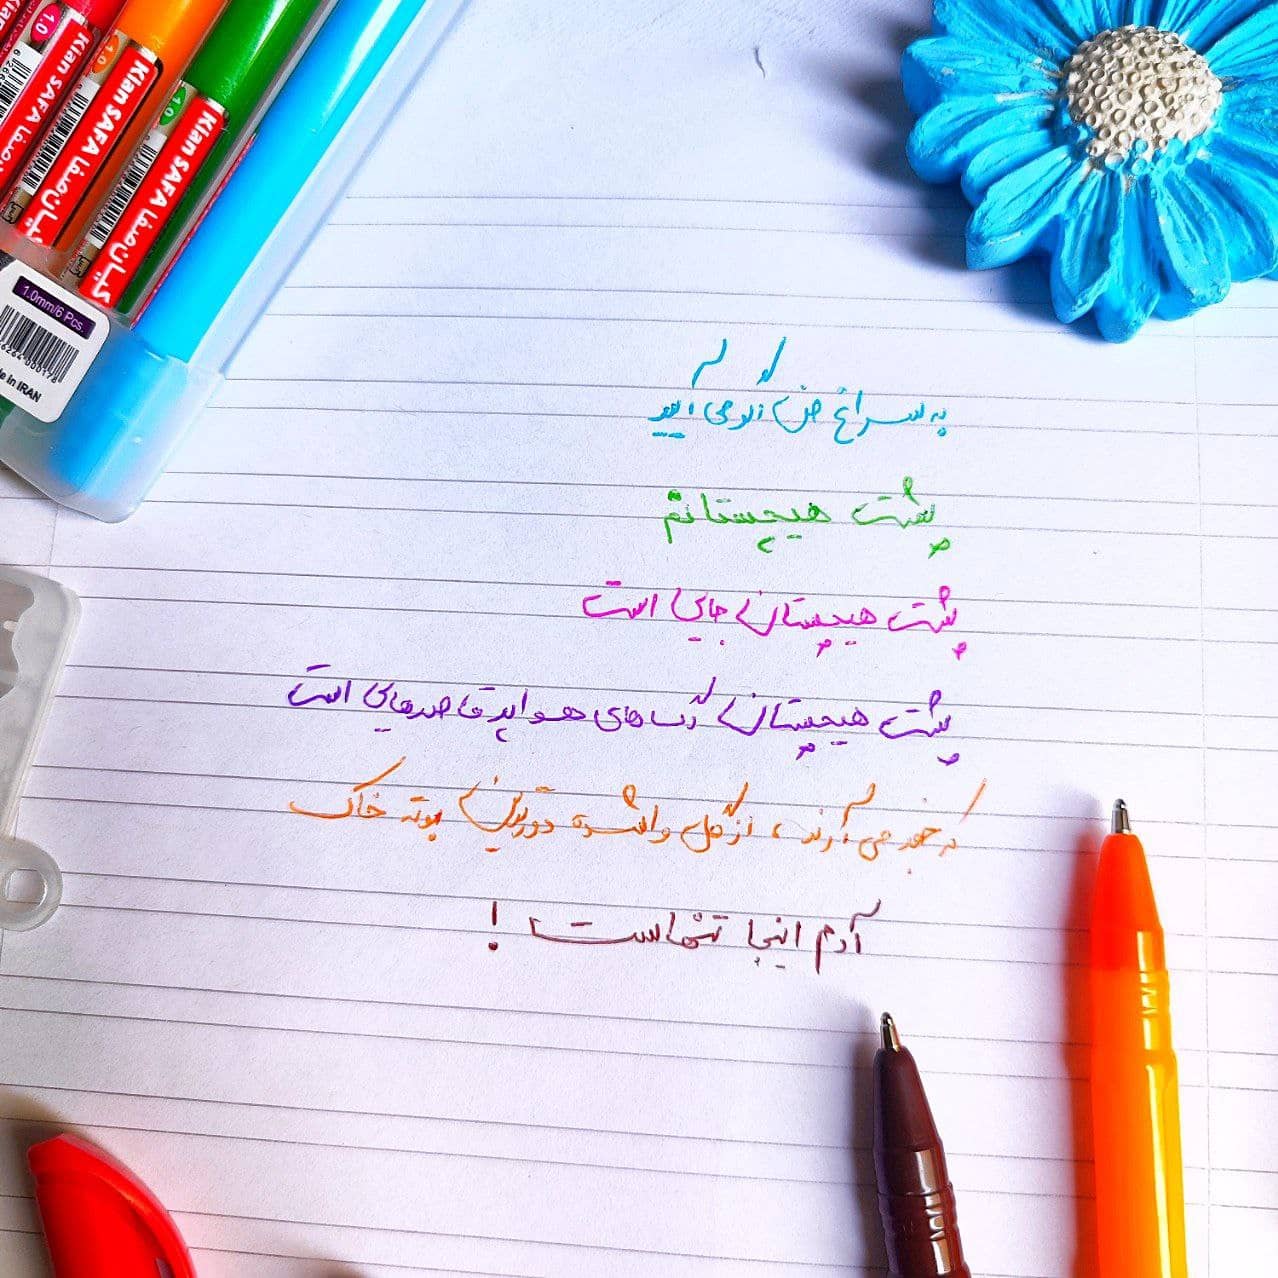 Kian SAFA کیان صفا
1.0
Kian SAFA کیان صفا
1.0
Kian SAFA کیان صفا
1.0mm/6 Pcs.
IRAN
به سراغ من اگر می آیید
پشت هیچستانم
پشت هیچستان جایی است
پشت هیچستان رگ های هوا پر قاصدهایی است
که خبر می آرند، از گل واشده دورترین بوته خاک
آدم اینجا تنهاست !